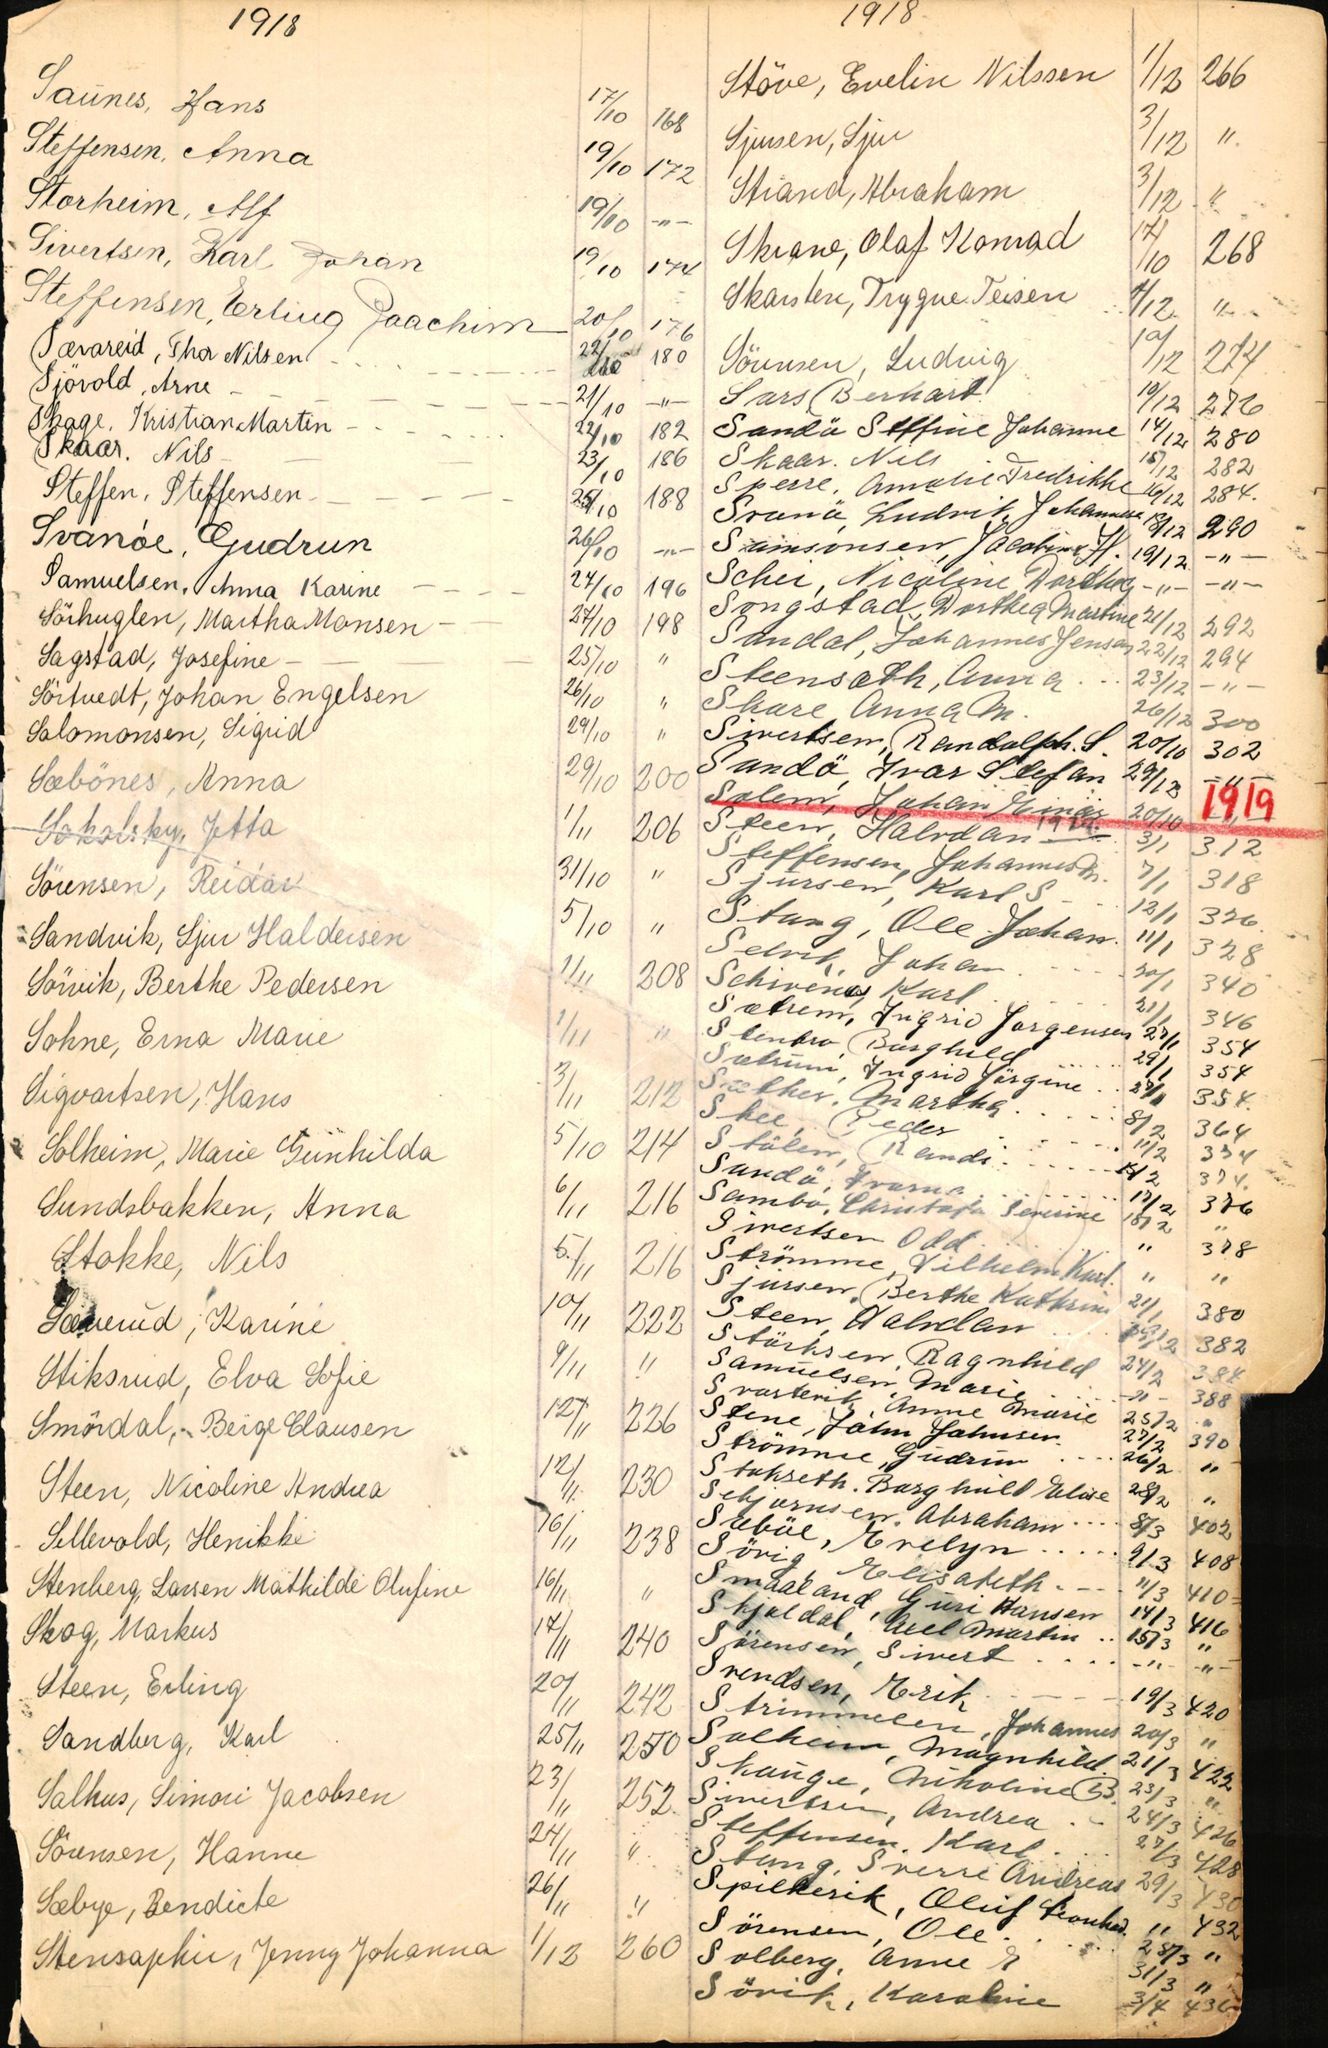 1918
Saunes, Hans 17/10 168
Steffensen, Anna 19/10 172
Storheim, Alf 19/10 -"-
Sivertsen, Karl Johan 19/10 174
Steffensen, Erling Joachim 20/10 176
Sævareid, Thor Nilsen 22/10 180
Sjövold, Arne 21/10 -"-
Skage, Kristian Martin 22/10 182
Skaar, Nils 23/10 186
Steffen, Steffensen 25/10 188
Svanöe, Gudrun 26/10 -"-
Samuelsen, Anna Karine 27/10 196
Sörhuglen, Martha Monsen 27/10 198
Sagstad, Josefine 25/10 "
Sörtvedt, Johan Engelsen 26/10 "
Salomonsen, Sigrid 29/10 "
Sæbönes, Anna 29/10 200
Sokolsky, Jetta 1/11 206
Sörensen, Reidar 31/10 "
Sandvik, Sjur Haldorsen 5/10 "
Sörvik, Berthe Pedersen 1/11 208
Sohne, Erna Marie 1/11 "
Sigvartsen, Hans 3/11 212
Solheim, Marie Gunhilda 5/10 214
Sundsbakken, Anna 6/11 216
Stokke, Nils 5/11 216
Sæverud, Karine 10/11 222
Stiksrud, Elva Sofie 9/11 "
Smördal, Beige Clausen 12/11 226
Steen, Nicoline Andrea 12/11 230
Sellevold, Henikke 16/11 238
Stenberg, Larsen Mathilde Olufine 16/11 "
Skog, Markus 17/11 240
Steen, Erling 20/11 242
Sandberg, Karl 25/11 250
Salhus, Simon Jacobsen 23/11 252
Sörensen, Hanne 24/11 "
Sæbye, Bendicte 26/11 "
Stensaphir, Jenny Johanna 1/12 260
1918
Støve, Evelin Nilssen 1/12 266
Sjursen, Sjur 3/12 "
Strand, Abraham 3/12 "
Skrane, Olaf Konrad 17/10 268
Skarsten, Trygve Teisen 4/12 "
Sörensen, Ludvig 10/12 274
Sars, Berhart 10/12 276
Sandö Steffine Johanne 14/12 280
Skaar, Nils 15/12 282
Sperre, Amalie Fredrikke 16/12 284
Svanö, Ludvik Johannes 18/12 290
Samsonsen, Jacobine H. 19/12 -"-
Schei, Nicoline Dorthea -"- -"-
Songstad, Dorthea Martine 21/12 292
Sandal, Johannes Jensen 22/12 294
Steensæth, Anna 23/12 -"-
Skare Anna M. 26/12 300
Sivertsen, Randolph. S. 20/10 302
Sundö, Ivar Stefan 29/12 -"-
Solem, Johan Einar 20/10 "
1919
Steen, Halvdan 1919 3/1 312
Steffensen, Johannes M. 7/1 318
Sjursen, Karl S 12/1 326
Stang, Ole Johan 11/1 328
Selvik, Johan 20/1 340
Schivenes, Karl 21/1 346
Sætrem, Ingrid Jørgensen 27/1 354
Stenbro, Borghild 29/1 354
Sætrum, Ingrid Jörgine 27/1 354
Sæther, Martha 8/2 364
Skee, Peder 11/2 374
Stölen, Randi 11/2 374
Sundö, Ivarna 17/2 376
Sambo, Christofa Severine 18/2 "
Sivertsen Odd " 378
Strömme, Vilhelm Karl " "
Sjursen, Berthe Kathrine 21/1 380
Steen, Halvdan 382
Störksen, Ragnhild 24/2 384
Samuelsen, Marie -"- 388
Svarterik, Anne Marie 25/2 "
Stene, John Johnsen 27/2 390
Strömme, Gudrun 26/2 "
Stokseth, Borghild Elise 28/2 "
Schjørnsen, Abraham 8/3 402
Sæböe, Evelyn 9/3 408
Sörig, Elisabeth 11/3 410
Smaaland, Guri Hansen 14/3 416
Skjeldal, Axel Martin 15/3 "
Sörensen, Sivert -"- -"-
Svendsen, Erik 19/3 420
Strimmelen, Johannes 20/3 "
Solheim, Magnhild 21/3 422
Skauge, Nikoline B. 23/3 "
Sivertsen, Andrea 24/3 426
Steffensen, Karl 27/3 428
Stang, Sverre Andreas 29/3 430
Spilkerik, Oluf Leonhard " 432
Sörensen, Ole 28/3 "
Solberg, Anne E 31/3 "
Sövik, Karoline 3/4 436